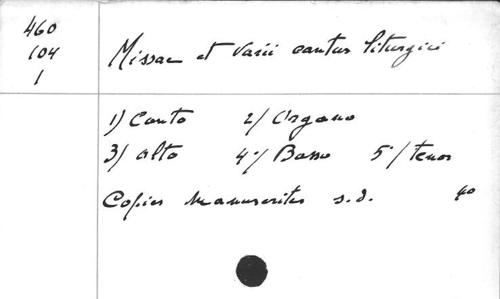 460
104
1
Missae et varii cantus liturgici
1) Canto 2/ Organo
3) alto 4°/ Basso 5°/ tenor
Copies manuscrites s.d. 4o